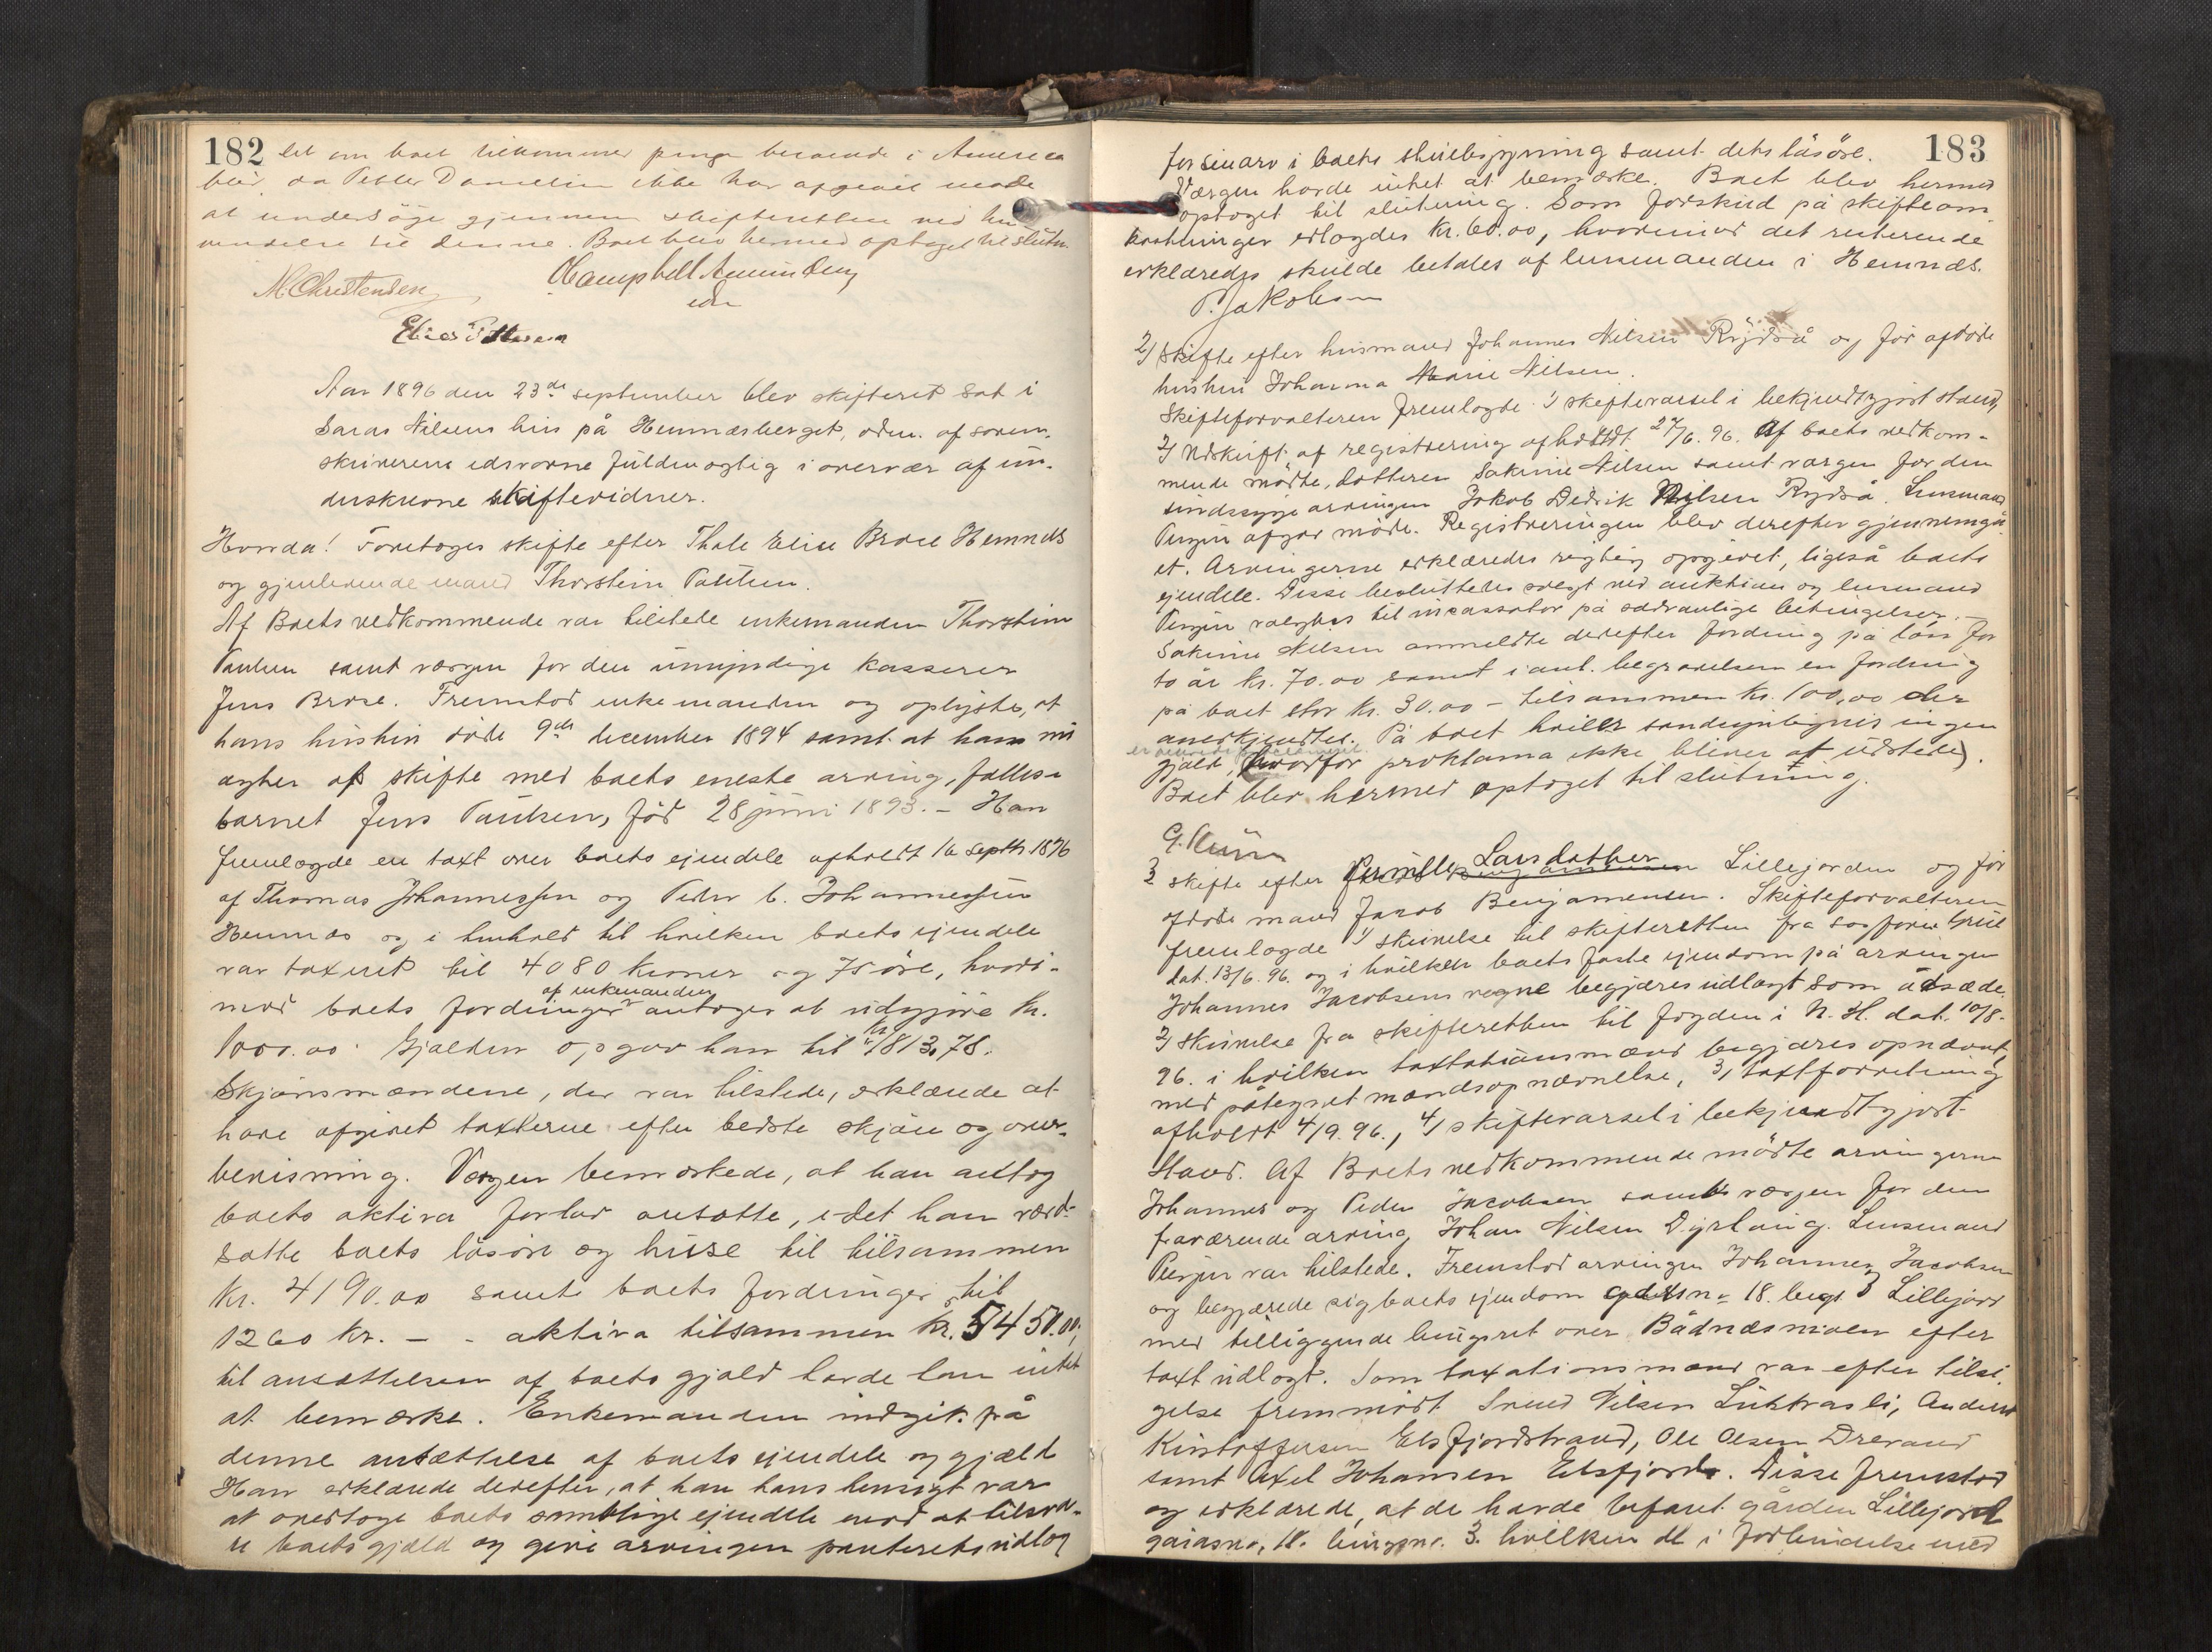 182
det om boet tilkommer penge beroende i America
blir, da Petter Danielsen ikke har opgivet
at undersöge gjennem skifteretten ved hen
vendelse til denne. Boet blev hermed optaget til slutn.
M Christensen OCampbell Amundsen
edsv
Elias Pettersen
Aar 1896 den 23de september blev skifteret sat i
Saras Nilsens hus på Hemnæsberget, adm. af soren-
skriverens edsvorne fuldmægtig i overvær af un-
derskrevne skiftevidner.
Hvorda! Foretoges skifte efter Thale Elise Brose Hemnæs
og gjenlevende mand Thorstein Paulsen.
Af Boets vedkommende var tilstede enkemanden Thorstein
Paulsen samt værgen for den umyndige kasserer
Jens Brose. Fremstod enkemanden og oplyste, at
hans hustru döde 9de december 1894 samt at han nu
agter at skifte med boets eneste arving, fælles-
barnet Jens Paulsen, föd 28 juni 1893. - Han
fremlagde en taxt over boets ejendele afholdt 16 septbr 1896
af Thomas Johannessen og Peder C. Johannessen
Hemnæs og i henhold til hvilken boets ejendele
var taxeret til 4080 kroner og 75 öre, hvori-
mod boets fordringer af enkemanden antoges at udgjöre kr.
1000.00. Gjælden opgav han til kr. 1813,78.
Skjönsmændene, der var tilstede, erklærede at
have afgivet taxterne efter bedste skjön og over-
bevisning. Værgen bemærkede, at han antog
boets aktiva forlavt ansatte, idet han værd-
satte boets lösöre og huse til tilsammen
kr. 4190.00 samt boets fordringer til
1260 kr. - - aktiva tilsammen kr. 5450.00;
til ansættelsen af boets gjæld havde han intet
at bemærke. Enkemanden indgik på
denne ansættelse af boets ejendele og gjæld
Han erklærede derefter, at han hans hensigt var
at overtage boets samtlige ejendele mod at tilsva-
re boets gjæld og give arvingen panteretsudlæg
183
for sin arv i boets skudebygning samt dets lösöre.
Værgen havde intet at bemærke. Boet blev hermed
optaget til slutning. Som forskud på skifteom
kostninger erlagdes kr. 60.00, hvorimod det resterende
erklæredes skulde betales af lensmanden i Hemnæs.
P. Jakobsen
2) Skifte efter husmand Johannes Nilsen Rydså og för afdöde
hustru Johanna Marie Nilsen.
Skifteforvalteren fremlagde 1) skiftevarsel i bekjendtgjort stand,
2) Udskrift af registrering afholdt 27/6. 96. Af boets vedkom-
mende mödte, datteren Sakrine Nilsen samt værgen for den
sindssyge arvingen Jakob Didrik Nilsen Rydså. Lensmand
afgav möde. Registreringen blev derefter gjennemgå-
et. Arvingerne erklæredes rigtig opgivet, ligeså boets
ejendele. Disse besluttedes solgt ved auktion og lensmand
valgtes til incassator på sædvanlige betingelser. -
Sakrine Nilsen anmeldte derefter fordring på lön for
to år kr. 70.00 samt i anl. begravelsen en fordring
på boet stor kr. 30.00 - tilsammen kr. 100,00 der
anerkjendtes. På boet hviler sandsynligvis ingen
gjæld, (hvorfor proklama ikke bliver at udstede).
Boet blev hermed optaget til slutning.
3 skifte efter Pernille Larsdatter Lillejorden og för
afdöde mand Jacob Benjamensen. Skifteforvalteren
fremlagde 1) skrivelse til skifteretten fra sagförer
dat. 13/6. 96. og i hvilken boets faste ejendom på arvingen
Johannes Jacobsens vegne begjæres udlagt som åsæde.
2) Skrivelse fra skifteretten til fogden i N. H. dat. 10/8.
96. i hvilken taxtationsmænd begjæres opnævnt,
med påtegnet mandsopnævnelse, 3) taxtforretning
afholdt 4/9. 96., 4) skiftevarsel i bekjendtgjort
stand. Af Boets vedkommende mödte arvingerne
Johannes og Peder Jacobsen samt værgen for den
fraværende arving Johan Nilsen Dyrhaug. Lensmand
var tilstede. Fremstod arvingen Johannes Jacobsen
og begjærede sig boets ejendom gårdsn. 18. brugs 3 Lillejord
med tilliggende brugsret over Bådnæsmoen efter
taxt udlagt. Som taxationsmænd var efter tilsi-
gelse fremmödt Svend Nilsen Luktvasli, Anders
Kristoffersen Elsfjordstrand, Ole Olsen Drevand
samt Axel Johansen Elsfjord. Disse fremstod
og erklærede, at de havde befaret gården Lillejord
gårdsno, 18. brugsnr. 3. hvilken de i forbindelse med